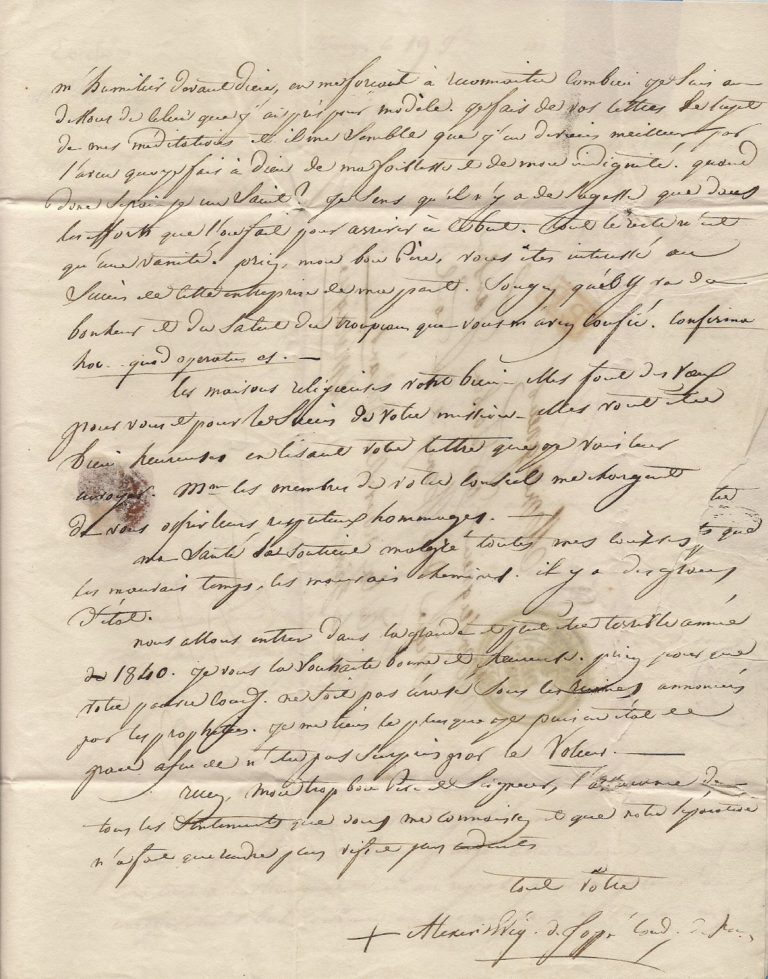 m'humilier devant dieu, en me forçant à reconnaitre combien je suis au
dessous de celui que j'ai pris pour modèle. je fais de vos lettres le sujet
de mes meditations et il me semble que j'en deviens meilleur par
l'aveu que je fais à dieu de ma foiblesse et de mon indignité. quand
donc serai je un saint? je sens qu'il n'y a de sagesse que dans
les efforts que l'on fait pour arriver à ce but. tout le reste n'est
qu'une vanité. priez, mon bon Père, vous êtes interessé au
succès de cette entreprise de ma part. Songez qu'il y va du
bonheur et du salut du troupeau que vous m'avez confié. confirma
hoc quod operatus es. —
les maisons religieuses vont bien. elles font des vœux
pour vous et pour le succès de votre mission. elles vont être
bien heureuses en lisant votre lettre que je vais leur
envoyer. Mrs les membres de votre conseil me chargent
de vous offrir leurs respectueux hommages. —
ma santé se soutient malgré toutes mes courses
les mauvais temps, les mauvais chemins. il y a des grâces
d'état.
nous allons entrer dans la grande et peut être terrible année
de 1840. je vous la souhaite bonne et heureuse. priez pour que
votre pauvre coadj. ne soit pas écrasé sous les ruines annoncées
par les prophètes. je me tiens le plus que je puis en état de
grace afin de n'être pas surpris par le voleur. —
recevez, mon trop bon Père et Seigneur, l'assurance de
tous les sentiments que vous me connoissez et que notre séparation
n'a fait que rendre plus vifs et plus ardents
tout vôtre
+ Alexis Evêq. de Joppé coad. de